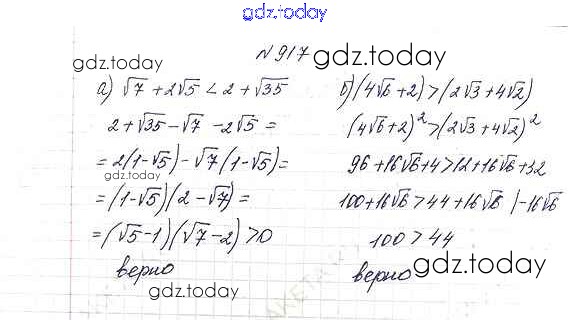 gdz.today
№917
gdz.today
gdz.today
а) √7 + 2√5 < 2 + √35
2+√35-√7 -2√5 =
= 2(1-√5) - √7(1-√5) =
gdz.today
= (1-√5)(2-√7) =
= (√5-1)(√7-2) > 0
верно
gdz.today
б) (4√6+2) > (2√3+4√2)
(4√6+2)² > (2√3+4√2)²
96+16√6+4 > 12+16√6+32
100+16√6 > 44+16√6 |-16√6
100 > 44
верно
gdz.today